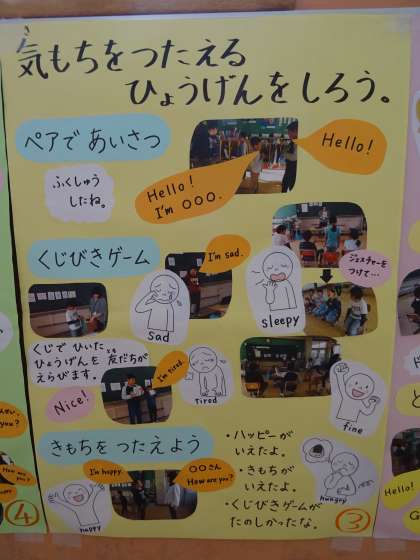 気もちをつたえる
ひょうげんをしろう。
ペアで あいさつ
ふくしゅう
したね。
Hello!
I'm ○○○.
Hello!
くじびきゲーム
I'm sad.
sad
sleepy
ジェスチャーを
つけて…
くじで ひいた
ひょうげんを 友だちが
とも
えらびます。
Nice!
I'm tired.
tired
fine
きもちを つたえよう
I'm happy.
○○さん
How are you?
happy
・ハッピーが
いえたよ。
・きもちが
いえたよ。
・くじびきゲームが
たのしかったな。
hungry
③
④
you?
How are
you?
Hello!